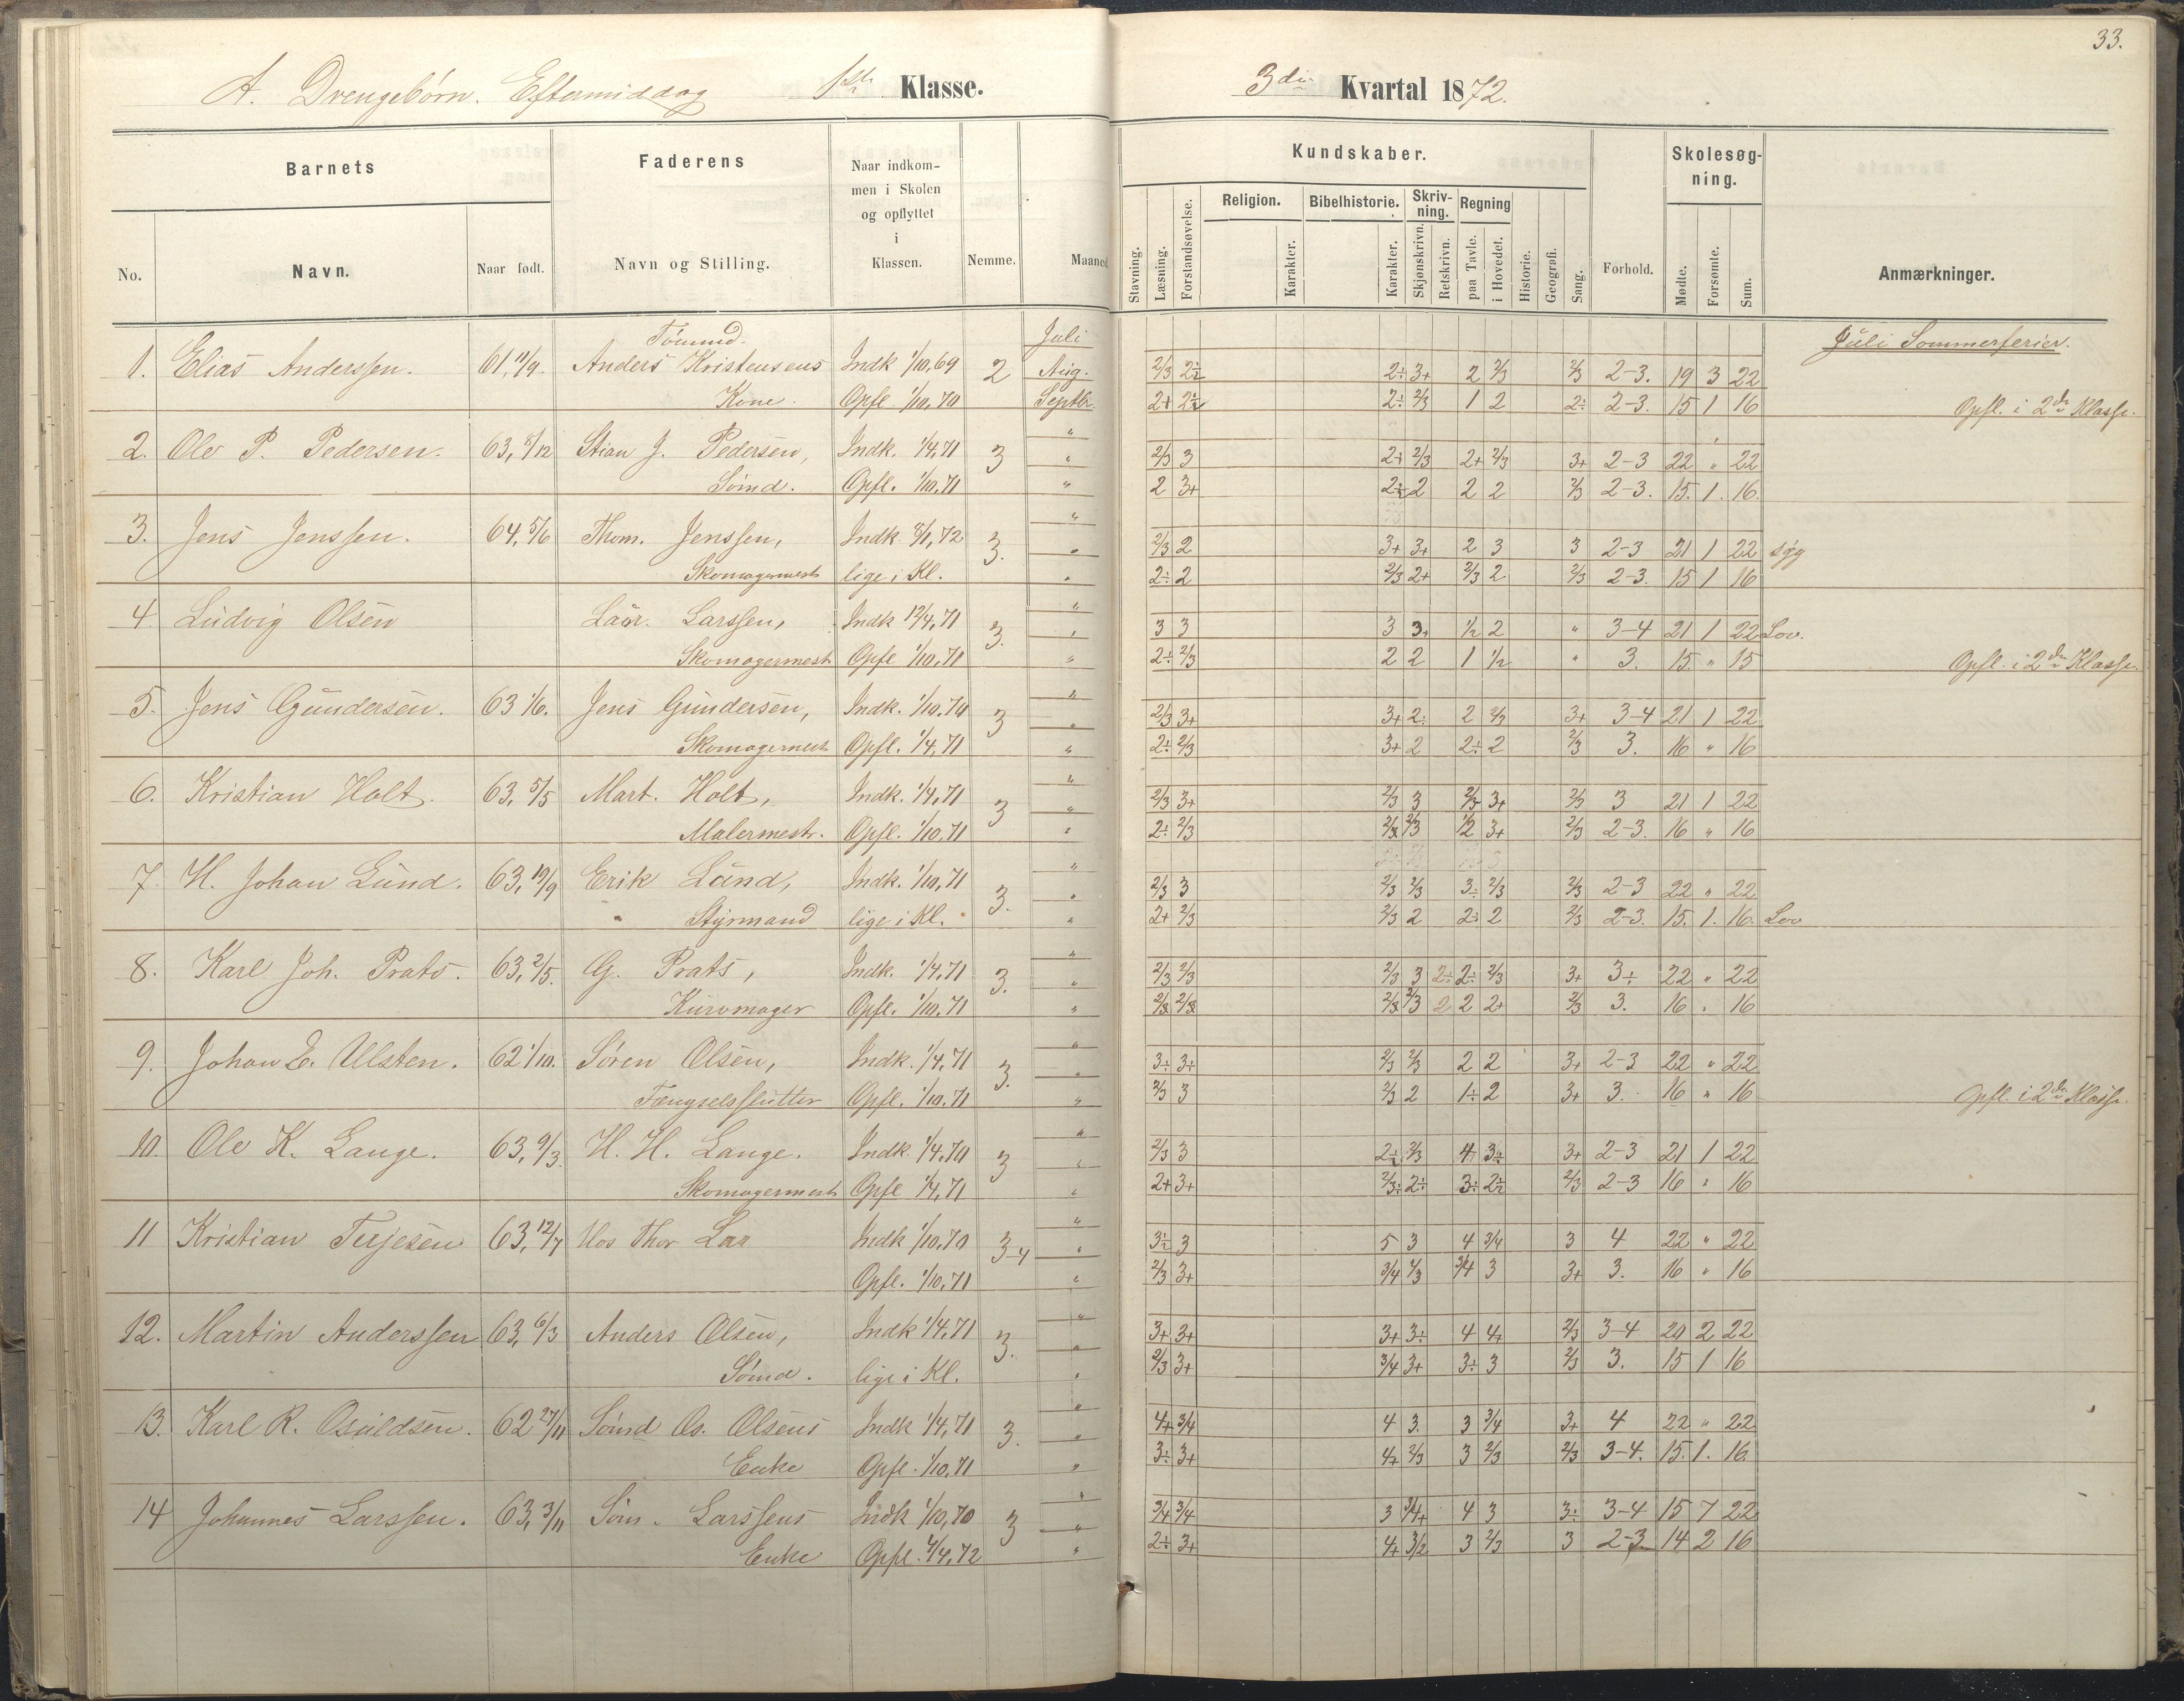 33.
A. Drengebørn. Eftermiddag 1ste Klasse. 3die Kvartal 1872.
Barnets Faderens Naar indkommen i Skolen og opflyttet i Klassen. Nemme. Maaned Kundskaber. Skolesøgning. Anmærkninger.
No. Navn. Naar født. Navn og Stilling.
Stavning. Læsning. Forstandsøvelse. Religion. Karakter. Bibelhistorie. Karakter. Skrivning. Skjønskrivn. Retskrivn. Regning paa Tavle. i Hovedet. Historie. Geografi. Sang. Forhold. Mødte. Forsømte. Sum.
Tømmd. Juli Juli Sommerferier.
1. Elias Anderssen. 61, 11/9. Anders Kristensens Indk 1/10, 69 2 Aug. 2/3 2÷ 2÷ 3+ 2 2/3 2/3 2-3. 19 3 22
Kone. Opfl. 1/10, 70 Septbr. 2+ 2÷ 2÷ 2/3 1 2 2÷ 2-3. 15 1 16 Opfl. i 2den Klasse.
2. Ole P. Pedersen. Stian J. Pedersen, Indk. 1/4, 71 3 " 2/3 3 2+ 2/3 2+ 2/3 3+ 2-3 22 " 22
Sømd. Opfl. 1/10, 71 " 2 3+ 2÷ 2 2 2 2/3 2-3. 15. 1. 16.
3. Jens Jenssen. 64, 5/6 Thom. Jenssen, Indk. 8/1, 72 3. " 2/3 2 3+ 3+ 2 3 3 2-3 21 1 22 syg
Skomagermest lige i Kl. " 2÷ 2 2/3 2+ 2/3 2 2/3 2-3. 15 1 16
4. Ludvig Olsen Laur. Larssen, Indk 12/4, 71 3. " 3 3 3 3+ 1/2 2 " 3-4 21 1 22 Lov.
Skomagermest Opfl 1/10, 71 " 2÷ 2/3 2 2 1 1/2 " 3. 15. " 15 Opfl. i 2den Klasse.
5. Jens Gundersen. 63 1/6. Jens Gundersen, Indk. 1/10, 70 3 " 2/3 3+ 3+ 2÷ 2 2/3 3+ 3-4 21 1 22
Skomagermest Opfl. 1/4, 71 " 2÷ 2/3 3+ 2 2÷ 2 2/3 3. 16 " 16
6. Kristian Holt. 63, 5/5 Mart. Holt, Indk. 1/4, 71 3 " 2/3 3+ 2/3 3 2/3 3+ 2/3 3 21 1 22
Malermestr. Opfl. 1/10, 71 " 2÷ 2/3 2/3 2/3 1/2 3+ 2/3 2-3. 16 " 16
7. H. Johan Lund. 63, 19/9 Erik Lund, Indk. 1/10, 71 3. " 2/3 3 2/3 2/3 3÷ 2/3 2/3 2-3 22 " 22
Styrmand lige i Kl. " 2+ 2/3 2/3 2 2÷ 2 2/3 2-3. 15. 1. 16. Lov
8. Karl Joh. Prats. 63, 2/5. G. Prats, Indk. 1/4, 71 3. " 2/3 2/3 2/3 3 2÷ 2÷ 2/3 3+ 3÷ 22 " 22
Kurvmager Opfl. 1/10, 71 " 2/3 2/3 2/3 2/3 2 2 2+ 2/3 3. 16 " 16
9. Johan E. Ulsten. 62 1/10. Søren Olsen, Indk. 1/4, 71 3. " 3÷ 3÷ 2/3 2/3 2 2 3+ 2-3 22 " 22
Fængselsslutter Opfl. 1/10, 71 " 2/3 3 2/3 2 1÷ 2 3+ 3. 16 " 16 Opfl. i 2den Klasse.
10. Ole K. Lange. 63, 9/3. H. H. Lange. Indk. 1/4, 70 3 " 2/3 3 2÷ 2/3 4 3÷ 3+ 2-3 21 1 22
Skomagermest Opfl 1/4, 71 " 2+ 3+ 2/3÷ 2÷ 3÷ 2÷ 2/3 2-3 16 " 16
11 Kristian Terjesen 63, 12/7 Hos Thor Indk 1/10, 70 3-4 " 3÷ 3 5 3 4 3/4 3 4 22 " 22
Opfl. 1/10, 71 " 2/3 3+ 3/4 2/3 3/4 3 3+ 3. 16 " 16
12. Martin Anderssen 63, 6/3 Anders Olsen, Indk 1/4, 71 3. " 3+ 3+ 3+ 3÷ 4 4+ 2/3 3-4 20 2 22
Sømd. lige i Kl. " 2/3 3+ 3/4 3+ 3÷ 3 2/3 3. 15 1 16
13. Karl R. Osuldsen. 62 27/11 Sømd Os. Olsens Indk 1/4, 71 3. " 4+ 3/4 4 3. 3 3/4 3+ 4 22 " 22
Enke Opfl. 1/10, 71 " 3÷ 3+ 4+ 2/3 3 2/3 2/3 3-4. 15. 1. 16.
14 Johannes Larssen. 63, 3/11 Søm. Larssens Indk 1/10, 70 3 " 3/4 3/4 3 3/4+ 4 3 3÷ 3-4 15 7 22
Enke Opfl. 4/4, 72 " 2÷ 3+ 4+ 3/2 3 2/3 3 2-3. 14 2 16